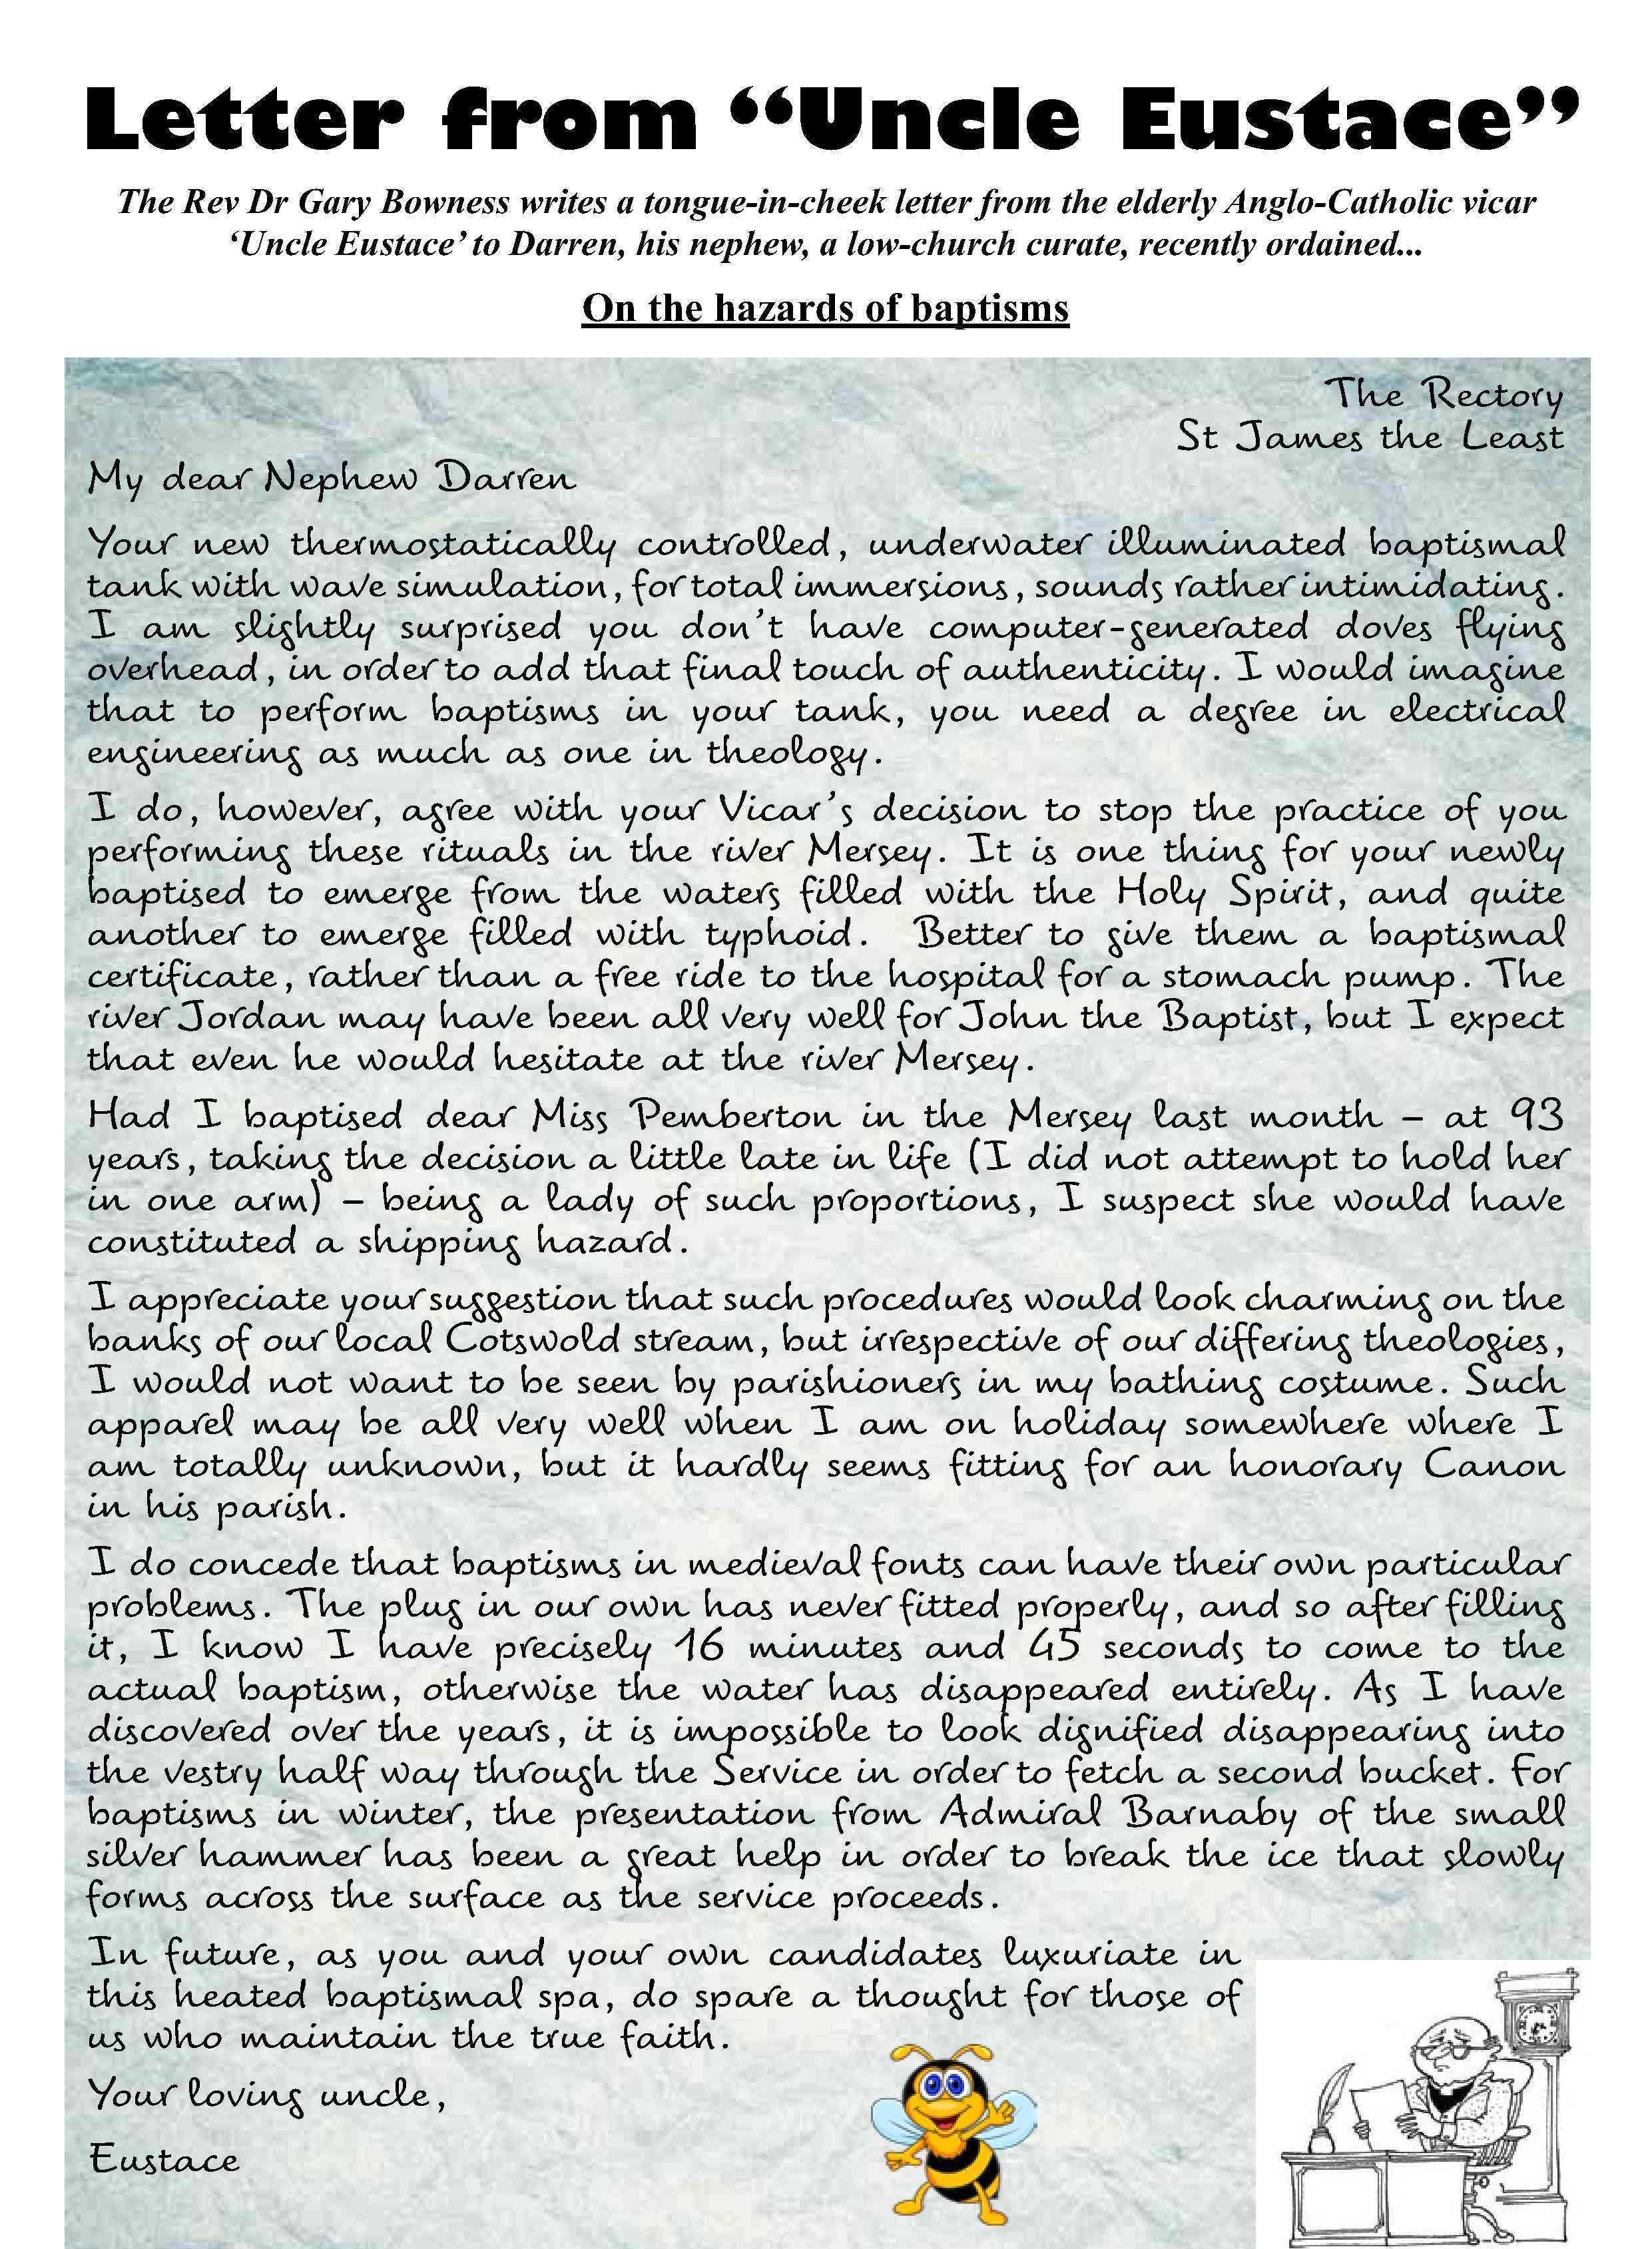 Letter from “Uncle Eustace”
The Rev Dr Gary Bowness writes a tongue-in-cheek letter from the elderly Anglo-Catholic vicar
‘Uncle Eustace’ to Darren, his nephew, a low-church curate, recently ordained...
On the hazards of baptisms
The Rectory
St James the Least
My dear Nephew Darren
Your new thermostatically controlled, underwater illuminated baptismal
tank with wave simulation, for total immersions, sounds rather intimidating.
I am slightly surprised you don’t have computer-generated doves flying
overhead, in order to add that final touch of authenticity. I would imagine
that to perform baptisms in your tank, you need a degree in electrical
engineering as much as one in theology.
I do, however, agree with your Vicar’s decision to stop the practice of you
performing these rituals in the river Mersey. It is one thing for your newly
baptised to emerge from the waters filled with the Holy Spirit, and quite
another to emerge filled with typhoid. Better to give them a baptismal
certificate, rather than a free ride to the hospital for a stomach pump. The
river Jordan may have been all very well for John the Baptist, but I expect
that even he would hesitate at the river Mersey.
Had I baptised dear Miss Pemberton in the Mersey last month – at 93
years, taking the decision a little late in life (I did not attempt to hold her
in one arm) – being a lady of such proportions, I suspect she would have
constituted a shipping hazard.
I appreciate your suggestion that such procedures would look charming on the
banks of our local Cotswold stream, but irrespective of our differing theologies,
I would not want to be seen by parishioners in my bathing costume. Such
apparel may be all very well when I am on holiday somewhere where I
am totally unknown, but it hardly seems fitting for an honorary Canon
in his parish.
I do concede that baptisms in medieval fonts can have their own particular
problems. The plug in our own has never fitted properly, and so after filling
it, I know I have precisely 16 minutes and 45 seconds to come to the
actual baptism, otherwise the water has disappeared entirely. As I have
discovered over the years, it is impossible to look dignified disappearing into
the vestry half way through the Service in order to fetch a second bucket. For
baptisms in winter, the presentation from Admiral Barnaby of the small
silver hammer has been a great help in order to break the ice that slowly
forms across the surface as the service proceeds.
In future, as you and your own candidates luxuriate in
this heated baptismal spa, do spare a thought for those of
us who maintain the true faith.
Your loving uncle,
Eustace